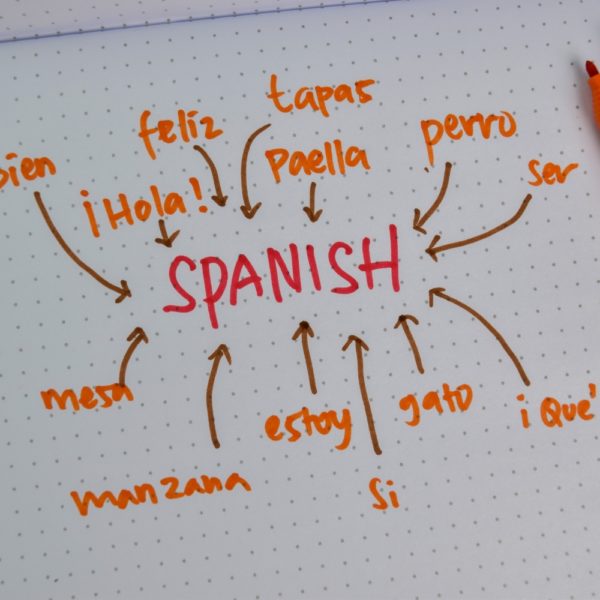 tapas
feliz
perro
paella
bien
ser
¡Hola!
SPANISH
mesa
gato
¡ Que'
estoy
manzana
si